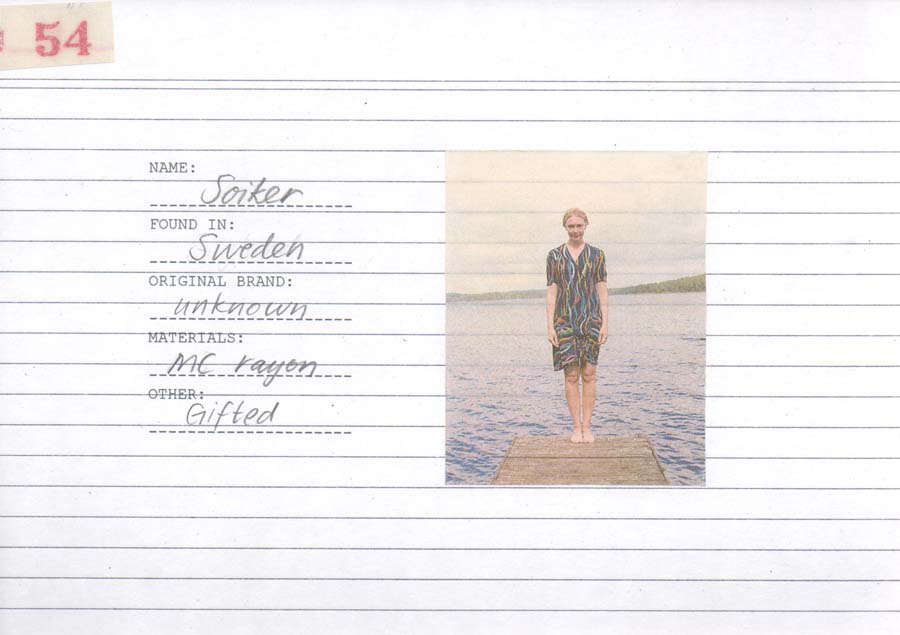 54
NAME:
Soiker
FOUND IN:
Sweden
ORIGINAL BRAND:
unknown
MATERIALS:
MC rayon
OTHER:
Gifted